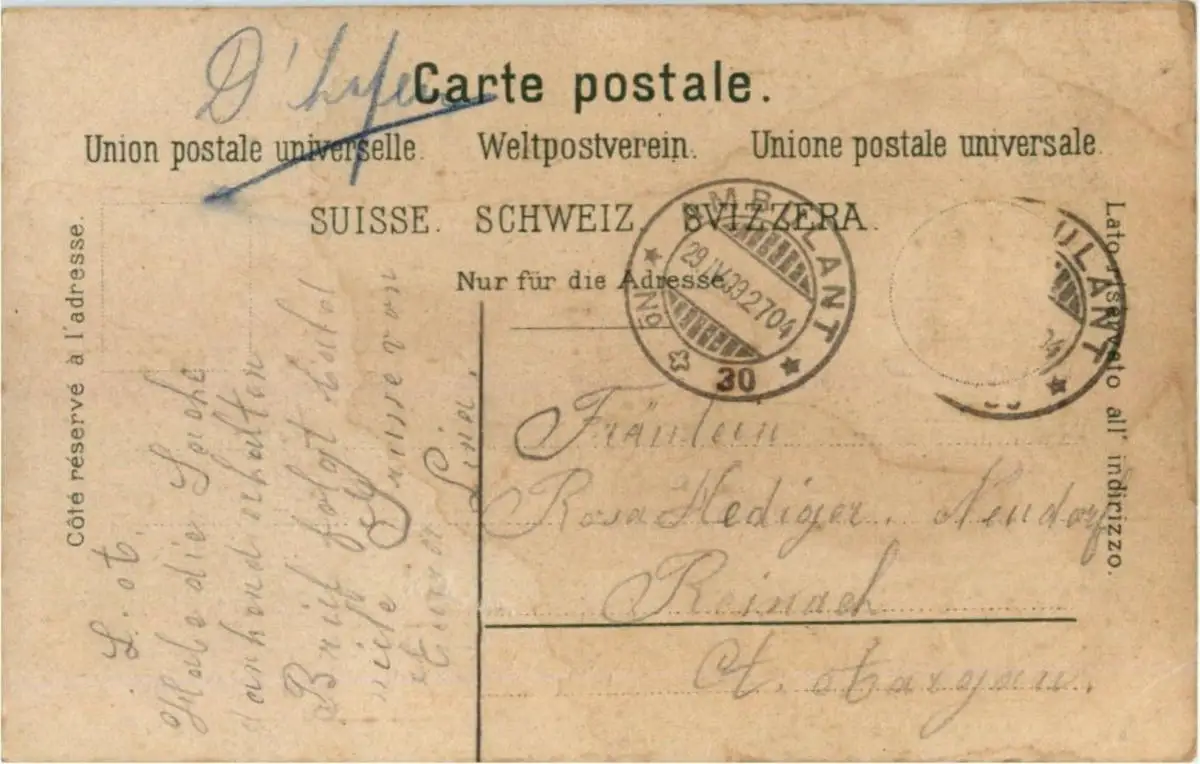 D'
Carte postale.
Union postale universelle. Weltpostverein. Unione postale universale.
SUISSE. SCHWEIZ. SVIZZERA.
Nur für die Adresse.
Côté réservé à l'adresse.
Lato riservato all' indirizzo.
AMBULANT
29.IV.39.2704
No
30
ULANT
Fräulein
Rosa Hediger. Neudorf
Reinach
Ct. Aargau.
L. A.
Habe die Sache
dankend erhalten
Brief folgt bald
viele Grüsse von
Eurer
Lina.